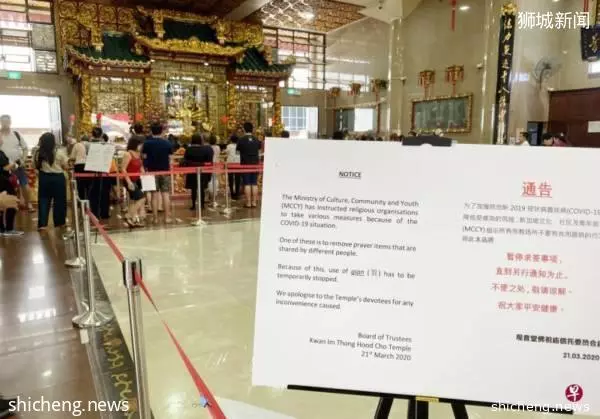 狮城新闻
NOTICE
The Ministry of Culture, Community and Youth
(MCCY) has instructed religious organisations
to take various measures because of the
COVID-19 situation.
One of these is to remove prayer items that are
shared by different people.
Because of this, use of qian (签) has to be
temporarily stopped.
We apologise to the Temple's devotees for any
inconvenience caused.
Board of Trustees
Kwan Im Thong Hood Cho Temple
21st March 2020
通告
2019 冠状病毒疾病(COVID-1
(MCCY)
暂停求签事项,
直到另行通知为止。
不便之处,敬请谅解。
祝大家平安健康。
观音堂佛祖庙信托委员会
21.03.2020
shicheng.news
shicheng.news